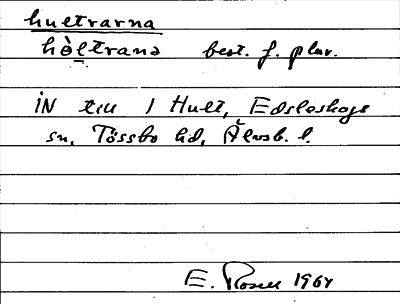 hultrarna
hòltrana best. f. plur.
IN till 1 Hult, Edsleskogs
sn, Tössbo hd, Älvsb. l.
E. Rosell 1964